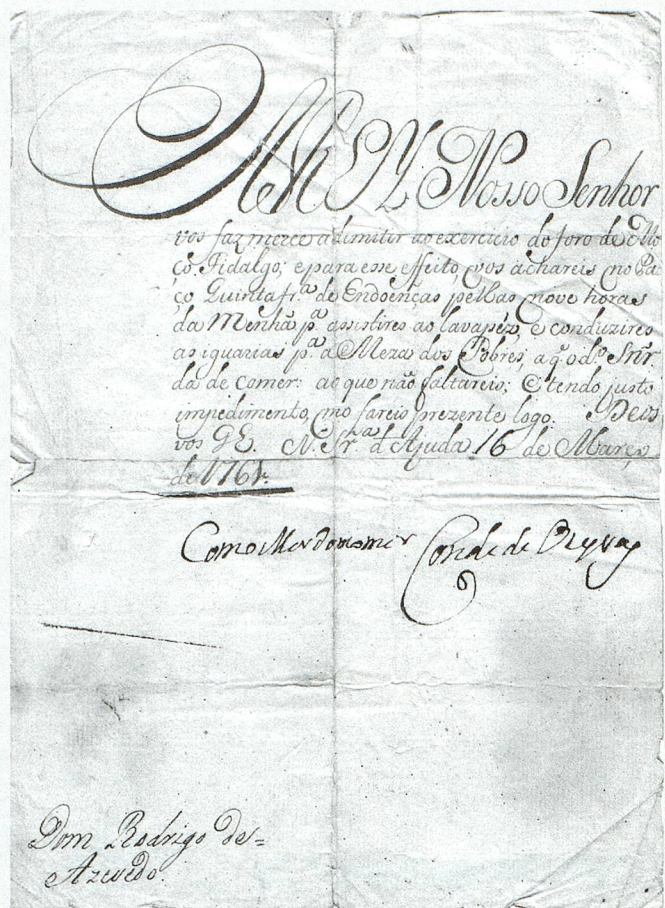 El REY Nosso Senhor
vos faz merce adimitir ao exercicio do foro de Mo
ço Fidalgo; e para esse effeito, vos achareis no Pa
ço Quinta fr.ª de Endoenças pellas nove horas
da Menhã p.ª assistires ao lavapéz, e conduzires
as iguarias p.ª a Meza dos Pobres, a q̃ o d.º Snr̃
da de comer: ao que não faltareis; E tendo justo
impedimento, mo fareis prezente logo. Deos
vos G.E. N. Sr.ª d'Ajuda 16 de Março
de 1761.
Como Mordomo mor Conde de
Dom Rodrigo de=
Azevedo.